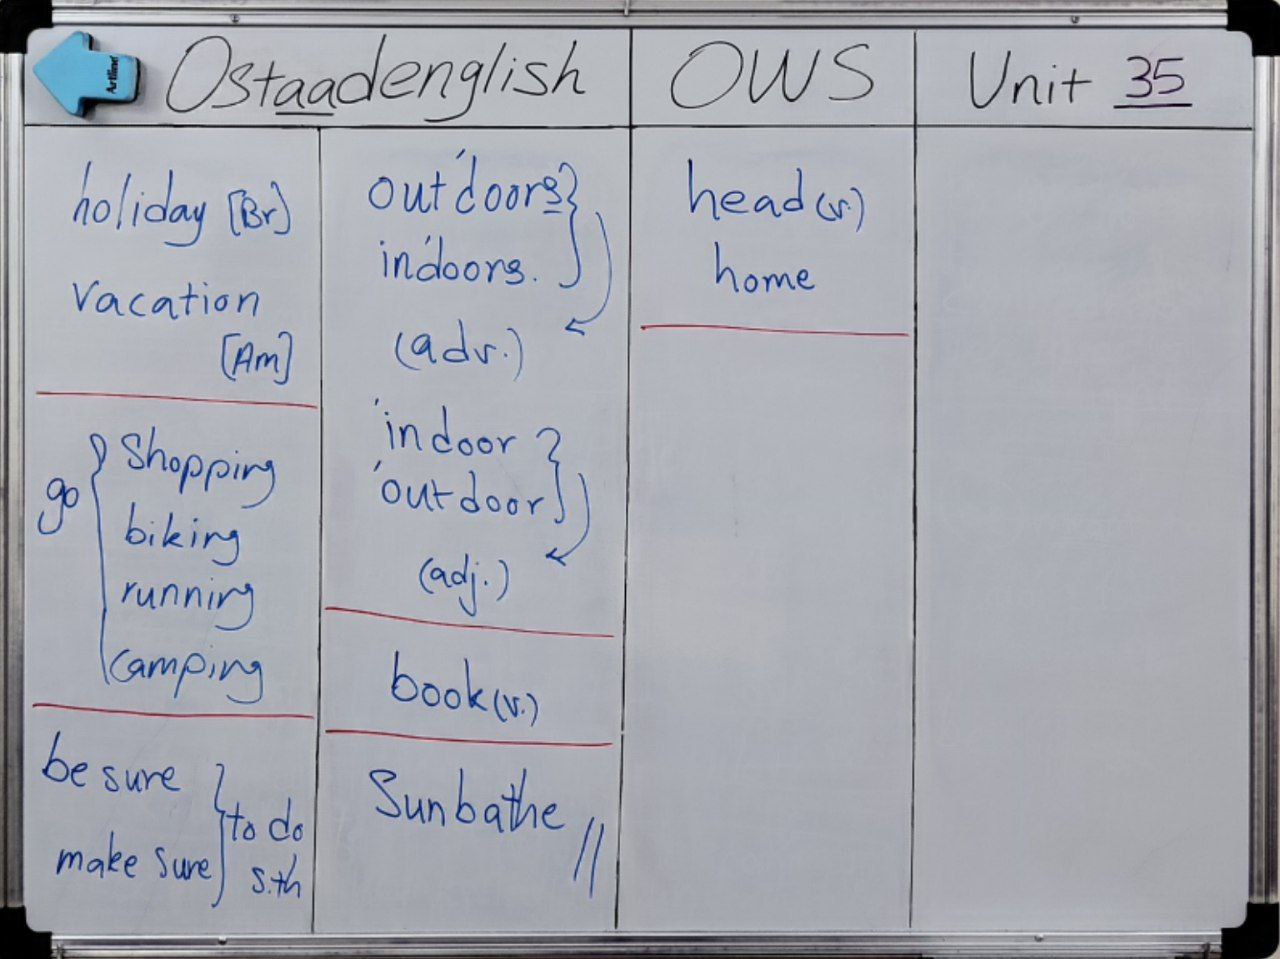 Artline
Ostaadenglish
OWS
Unit 35
holiday [Br]
vacation
[Am]
go
shopping
biking
running
camping
be sure
make sure
to do
s.th
out'doors
in'doors.
(adv.)
'indoor
'outdoor
(adj.)
book (v.)
Sunbathe //
head (v.)
home